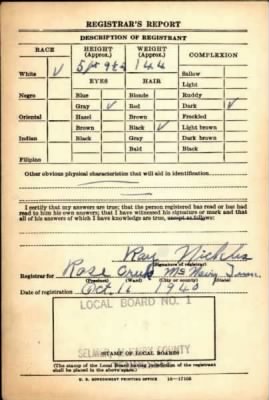 REGISTRAR'S REPORT
DESCRIPTION OF REGISTRANT
RACE HEIGHT (Approx.) WEIGHT (Approx.) COMPLEXION
White ✓ 5 ft 9½ 144 Sallow
EYES HAIR Light
Negro Blue Blonde Ruddy
Gray ✓ Red Dark ✓
Oriental Hazel Brown Freckled
Brown Black ✓ Light brown
Indian Black Gray Dark brown
Bald Black
Filipino
Other obvious physical characteristics that will aid in identification
I certify that my answers are true; that the person registered has read or has had
read to him his own answers; that I have witnessed his signature or mark and that
all of his answers of which I have knowledge are true, except as follows:
Ray
(Signature of registrar)
Registrar for Rose Creek McNairy Tenn.
(Precinct) (Ward) (City or county) (State)
Date of registration Oct 16 1940
LOCAL BOARD NO. 1
COUNTY
(STAMP OF LOCAL BOARD)
(The stamp of the Local Board having jurisdiction of the registrant
shall be placed in the above space.)
U. S. GOVERNMENT PRINTING OFFICE